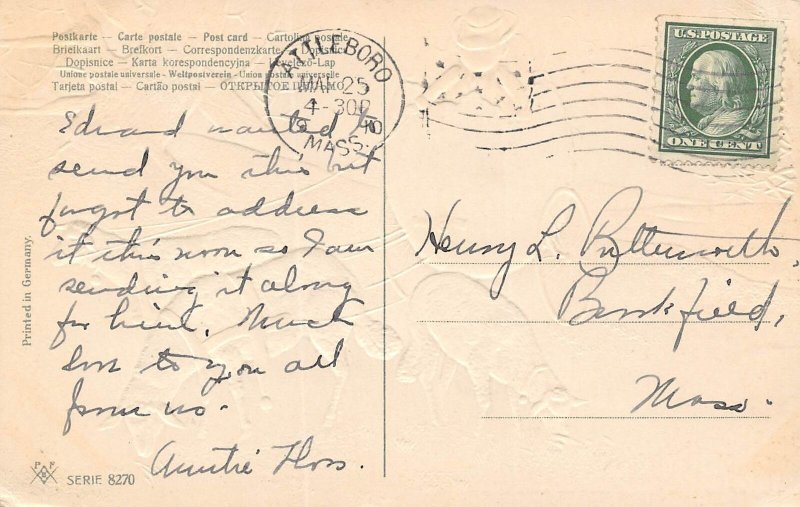 Postkarte — Carte postale — Post card — Cartolina postale
Briefkaart — Brefkort — Correspondenzkarte — Dopisnice
Dopisnice — Karta korespondencyjna — Levelező-Lap
Unione postale universale - Weltpostverein - Union postale universelle
Tarjeta postal — Cartão postal — ОТКРЫТОЕ ПИСЬМО
ATTLEBORO
MAR 25
4-30P
MASS.
U.S. POSTAGE
ONE CENT
Edward wanted to
send you this but
forgot to address
it this noon so I am
sending it along
for him. Much
love to you all
from us.
Auntie Flos.
Henry L. Butterworth,
Brookfield,
Mass.
Printed in Germany.
P F
SERIE 8270